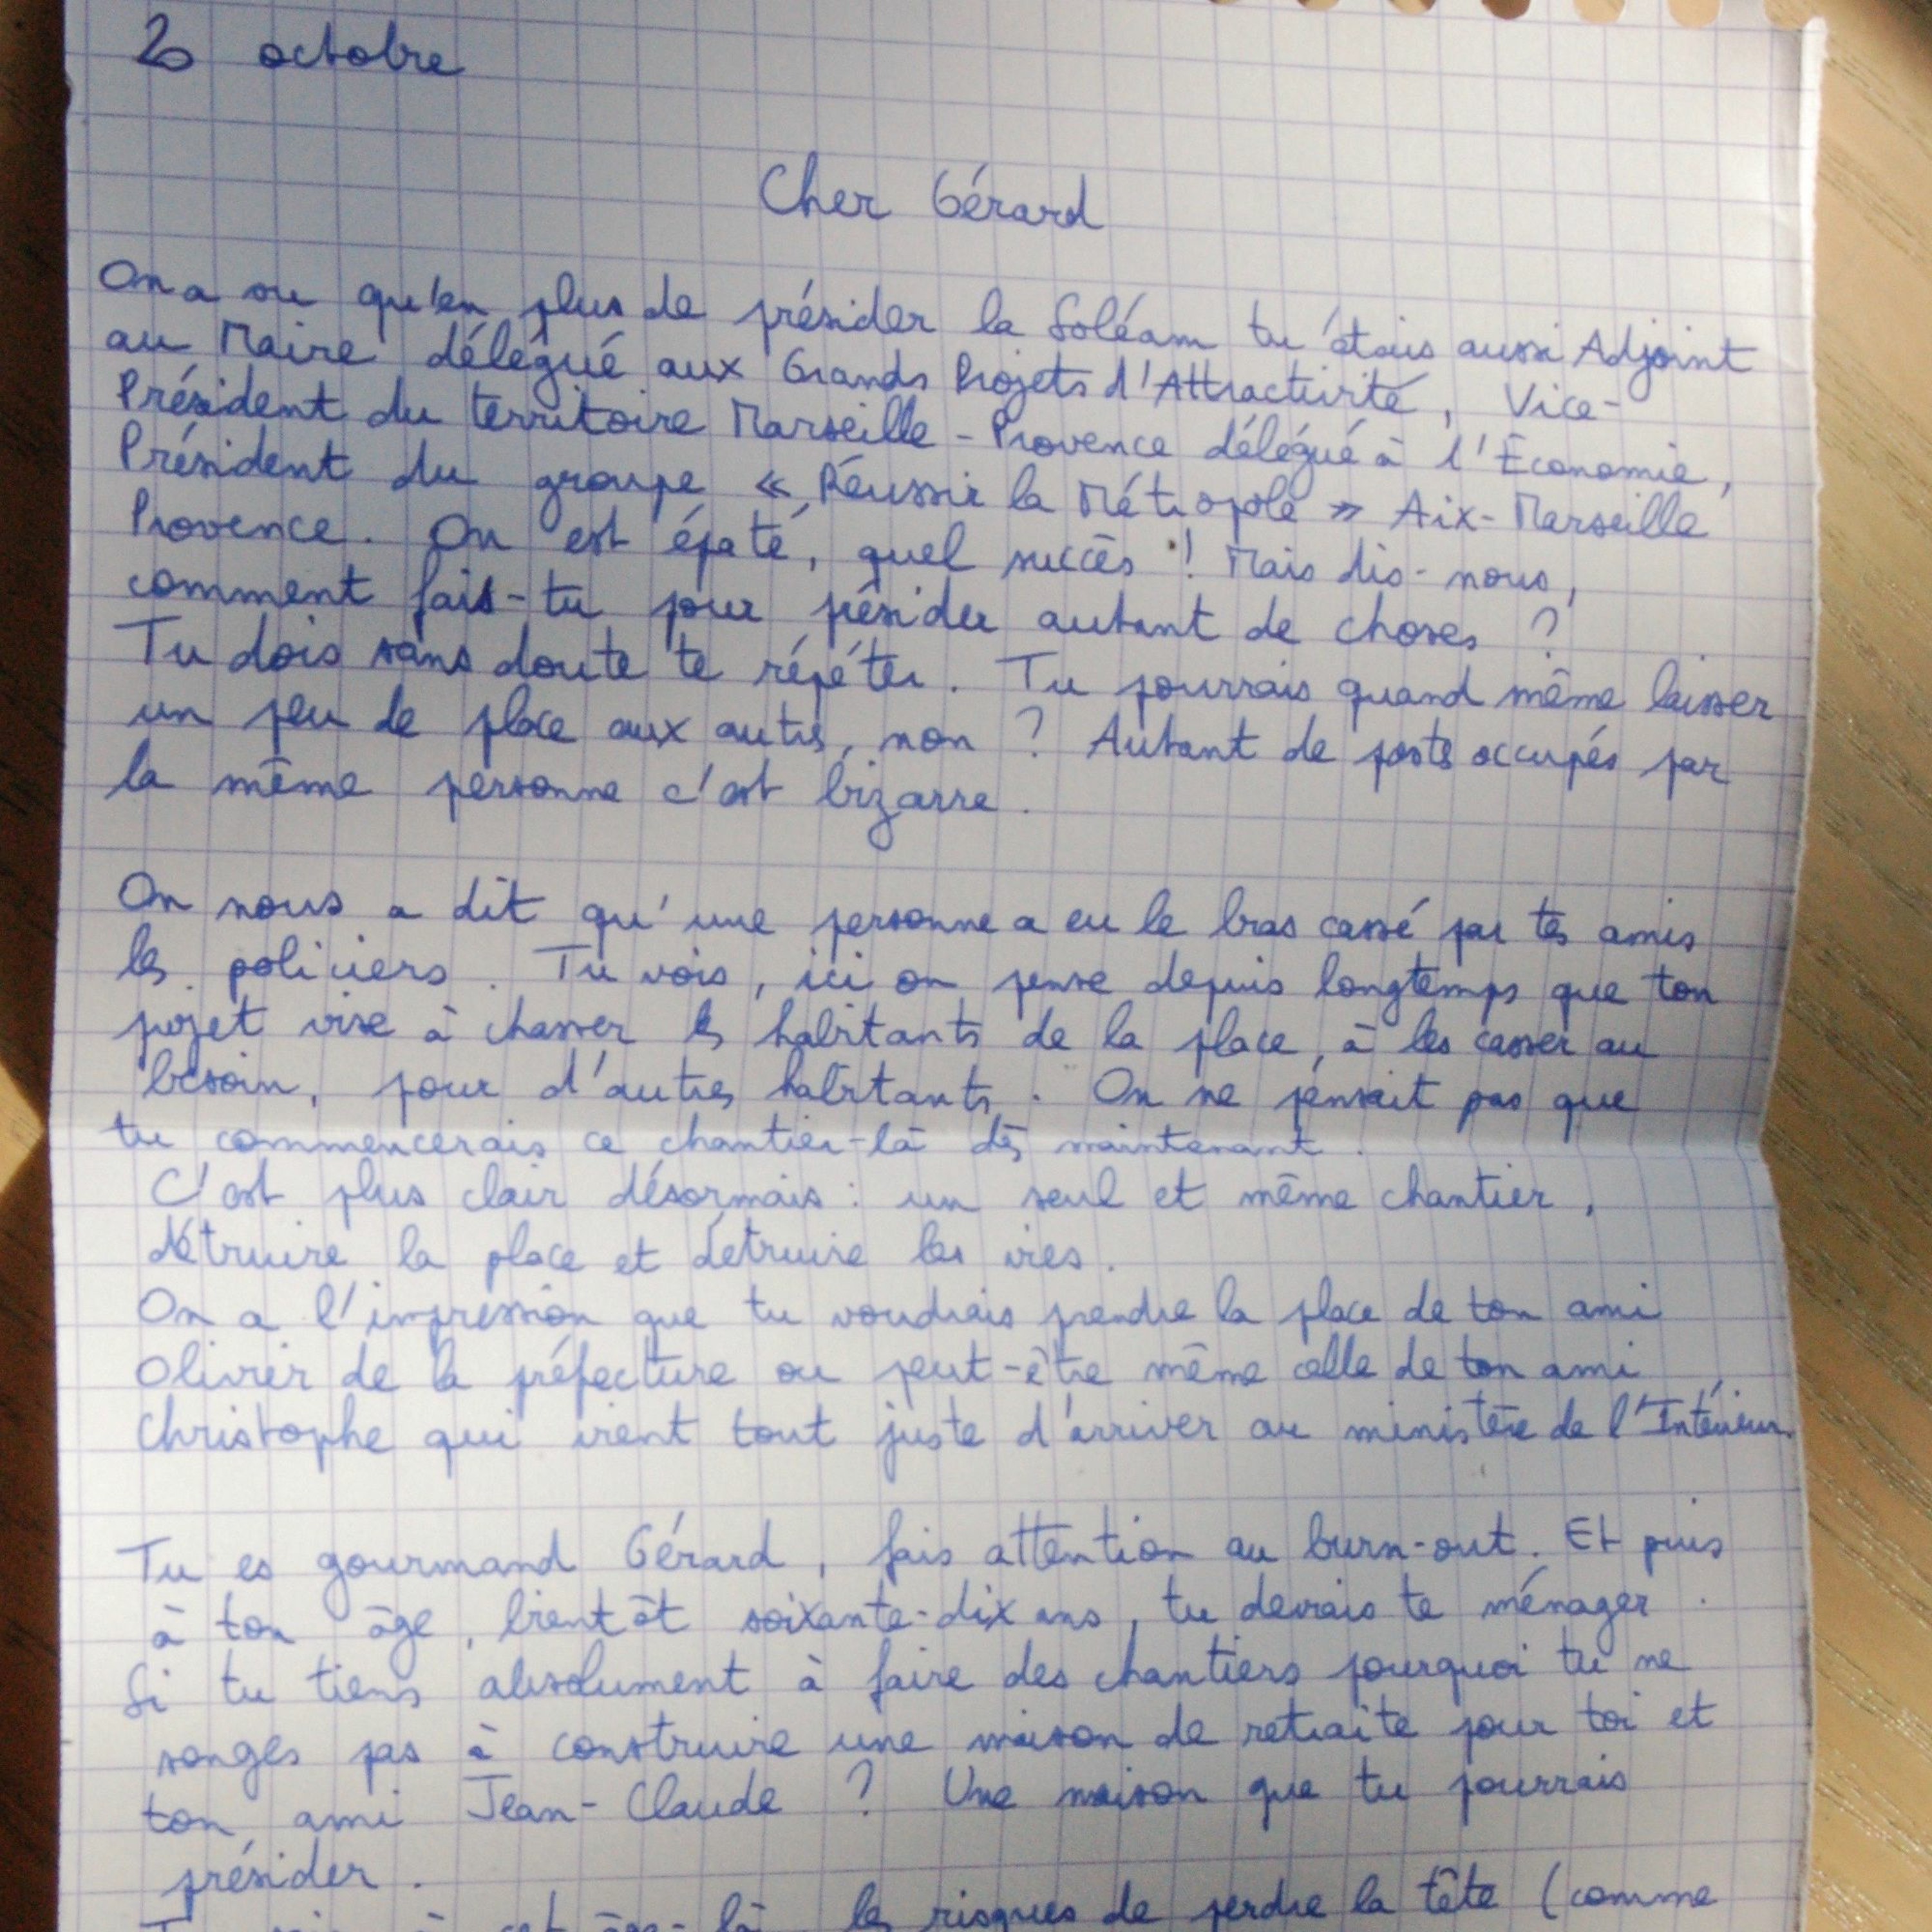 20 octobre
Cher Gérard
On a vu qu'en plus de présider la Soléam tu étais aussi Adjoint
au Maire délégué aux Grands Projets d'Attractivité, Vice-
Président du territoire Marseille-Provence délégué à l'Économie,
Président du groupe « Réussir la Métropole » Aix-Marseille
Provence. On est épaté, quel succès ! Mais dis-nous,
comment fais-tu pour présider autant de choses ?
Tu dois sans doute te répéter. Tu pourrais quand même laisser
un peu de place aux autres, non ? Autant de postes occupés par
la même personne c'est bizarre.
On nous a dit qu'une personne a eu le bras cassé par tes amis
les policiers. Tu vois, ici on pense depuis longtemps que ton
projet vise à chasser les habitants de la place, à les casser au
besoin, pour d'autres habitants. On ne pensait pas que
tu commencerais ce chantier-là dès maintenant.
C'est plus clair désormais : un seul et même chantier,
détruire la place et détruire les vies.
On a l'impression que tu voudrais prendre la place de ton ami
Olivier de la préfecture ou peut-être même celle de ton ami
Christophe qui vient tout juste d'arriver au ministère de l'Intérieur.
Tu es gourmand Gérard, fais attention au burn-out. Et puis
à ton âge, bientôt soixante-dix ans, tu devrais te ménager.
Si tu tiens absolument à faire des chantiers pourquoi tu ne
songes pas à construire une maison de retraite pour toi et
ton ami Jean-Claude ? Une maison que tu pourrais
présider.
à cet âge-là les risques de perdre la tête (comme